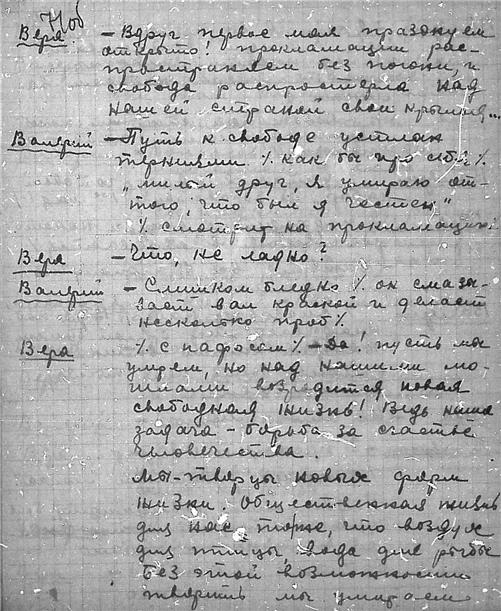 Вера – Вдруг первое мая празднуем
открыто! прокламации рас-
пространяем без погони, и
свобода распростерла над
нашей страной свои крылья...
Валерий – Путь к свободе устлан
терниями % как бы про себя %
„милый друг, я умираю от-
того, что был я честен"
% смотрит на прокламацию.
Вера – Что, не ладно?
Валерий – Слишком бледно % он смазы-
вает вал краской и делает
несколько проб %
Вера % с пафосом % – Да! пусть мы
умрем, но над нашими мо-
гилами возродится новая
свободная жизнь! Ведь наша
задача – борьба за счастье
человечества.
Мы – творцы новых форм
жизни. Общественная жизнь
для нас тоже, что воздух
для птицы вода для рыбы
Без этой возможности
творить мы умираем